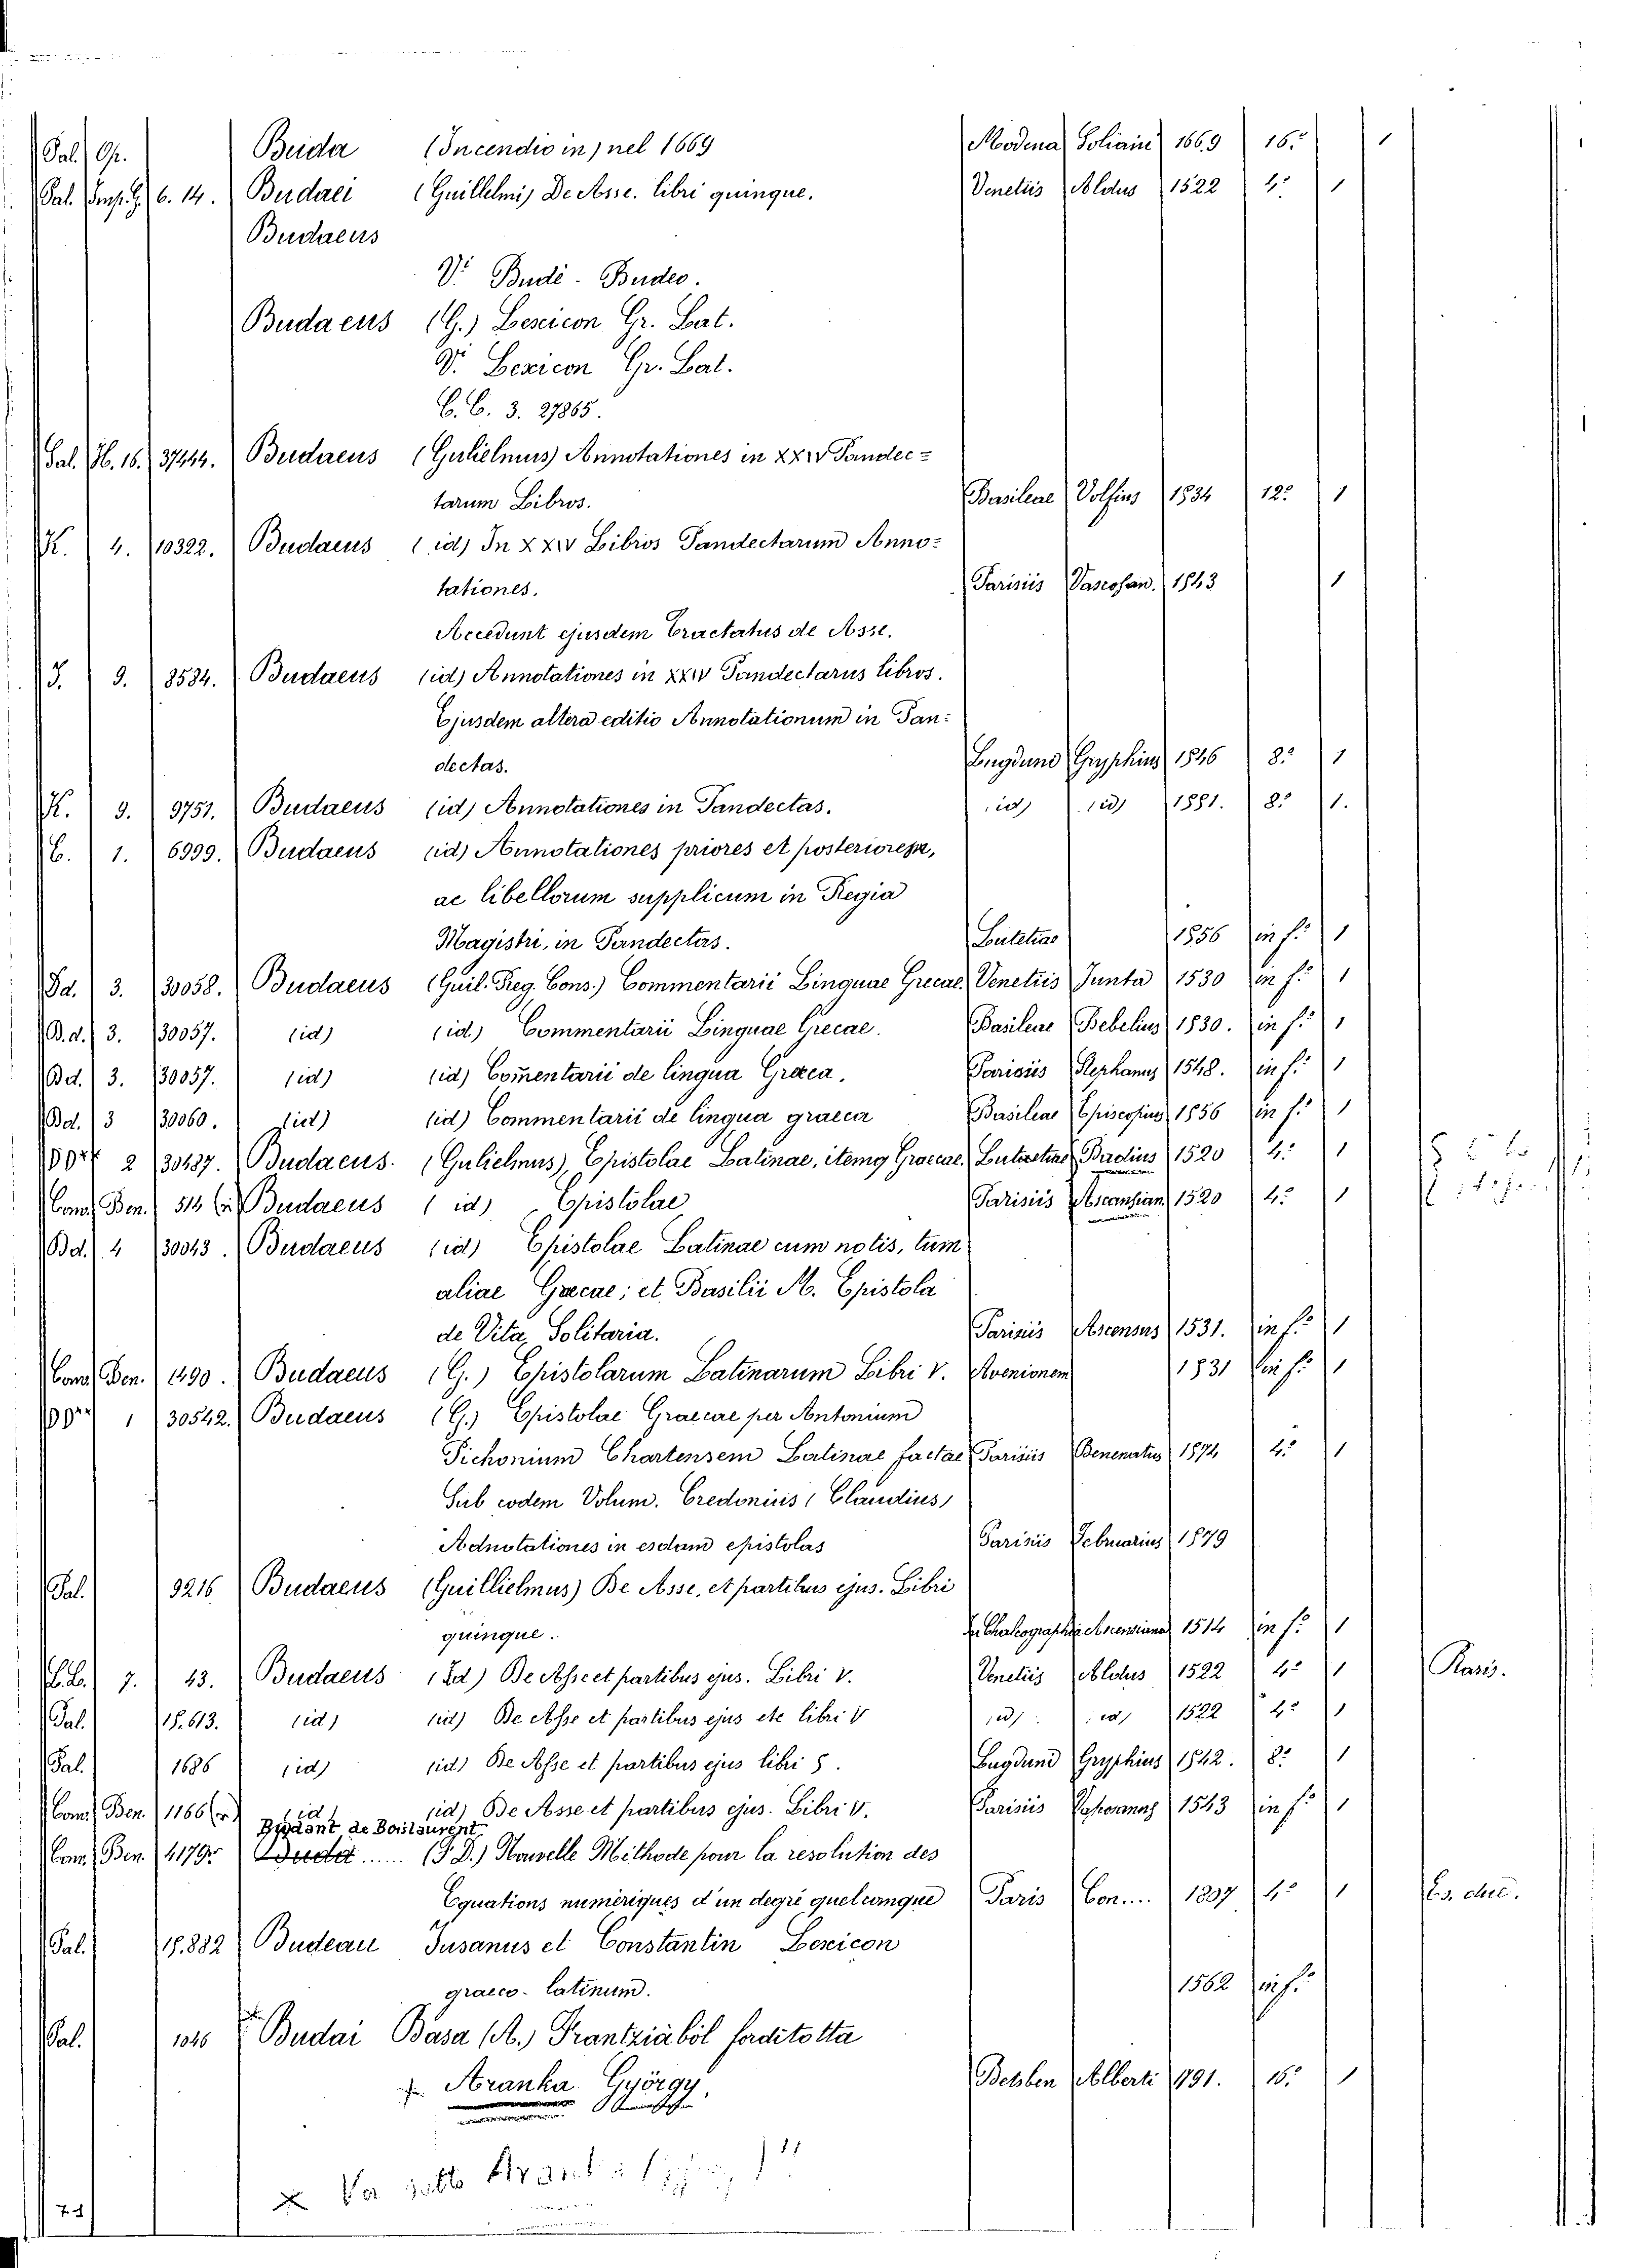 Sal. Gr. Buda (Incendio in) nel 1669 Modena Soliani 1669 16º 1
Sal. Imp. G. 6. 14. Budaei (Guillelmi) De Asse. libri quinque. Venetiis Aldus 1522 4º 1
Budaeus
Vi Budè - Budeo.
Budaeus (G.) Lexicon Gr. Lat.
Vi Lexicon Gr. Lat.
C. C. 3. 27865.
Sal. H. 16. 37444. Budaeus (Gulielmus) Annotationes in XXIV Pandec=
tarum Libros. Basileae Volfius 1534 12º 1
K. 4. 10322. Budaeus (id) In XXIV Libros Pandectarum Anno=
tationes. Parisiis Vascosan. 1543 1
Accedunt ejusdem Tractatus de Asse.
J. 9. 8584. Budaeus (id) Annotationes in XXIV Pandectarus libros.
Ejusdem altera editio Annotationum in Pan=
dectas. Lugduni Gryphius 1546 8º 1
K. 9. 9751. Budaeus (id) Annotationes in Pandectas. (id) (id) 1551. 8º 1.
C. 1. 6999. Budaeus (id) Annotationes priores et posteriores,
ac libellorum supplicum in Regia
Magistri, in Pandectas. Lutetiae 1556 in fº 1
Bd. 3. 30058. Budaeus (Guil. Reg. Cons.) Commentarii Linguae Grecae. Venetiis Junta 1530 in fº 1
B.d. 3. 30057. (id) (id) Commentarii Linguae Grecae. Basileae Bebelius 1530. in fº 1
Bd. 3. 30057. (id) (id) Com̄entarii de lingua Graeca. Parisiis Stephanus 1548. in fº 1
Bd. 3 30060. (id) (id) Commentarii de lingua graeca Basileae Episcopius 1556 in fº 1
2 30487. Budaeus. (Gulielmus), Epistolae Latinae, itemq Graecae. Lutetiae Badius 1520 4º 1
Com. Ben. 514 Budaeus (id) Epistolae Parisiis Ascensian 1520 4º 1
Bd. 4 30043. Budaeus (id) Epistolae Latinae cum notis, tum
aliae Graecae; et Basilii M. Epistola
de Vita Solitaria. Parisiis Ascensus 1531. in fº 1
Com. Ben. 1490. Budaeus (G.) Epistolarum Latinarum Libri V. Avenionem 1531 in fº 1
1 30542. Budaeus (G.) Epistolae Graecae per Antonium
Pichonium Chartensem Latinae factae Parisiis Benenatus 1574 4º 1
Sub eodem Volum. Credonius (Claudius)
Adnotationes in esdam epistolas Parisiis Februarius 1579
Sal. 9216 Budaeus (Guillielmus) De Asse, et partibus ejus. Libri
quinque. In Chalcographia Ascensiana 1514 in fº 1
7. 43. Budaeus (Id) De Asse et partibus ejus. Libri V. Venetiis Aldus 1522 4º 1 Raris.
Sal. 18.613. (id) (id) De Asse et partibus ejus etc libri V (id) (id) 1522 4º 1
Sal. 1686 (id) (id) De Asse et partibus ejus libri 5. Lugduni Gryphius 1542. 8º 1
Com. Ben. 1166 (id) (id) De Asse et partibus ejus. Libri V. Parisiis 1543 in fº 1
Budant de Boislaurent
Com. Ben. 4179 (F. D.) Nouvelle Méthode pour la resolution des
Equations numériques d'un degré quelcumque Paris Con.... 1807 4º 1
Sal. 18.882 Budeau Jusanus et Constantin Lexicon
graeco-latinum. 1562 in fº
Sal. 1046 Budai Basa (A.) Frantziából fordította
Aranka György. Betsben Alberti 1791. 15º 1